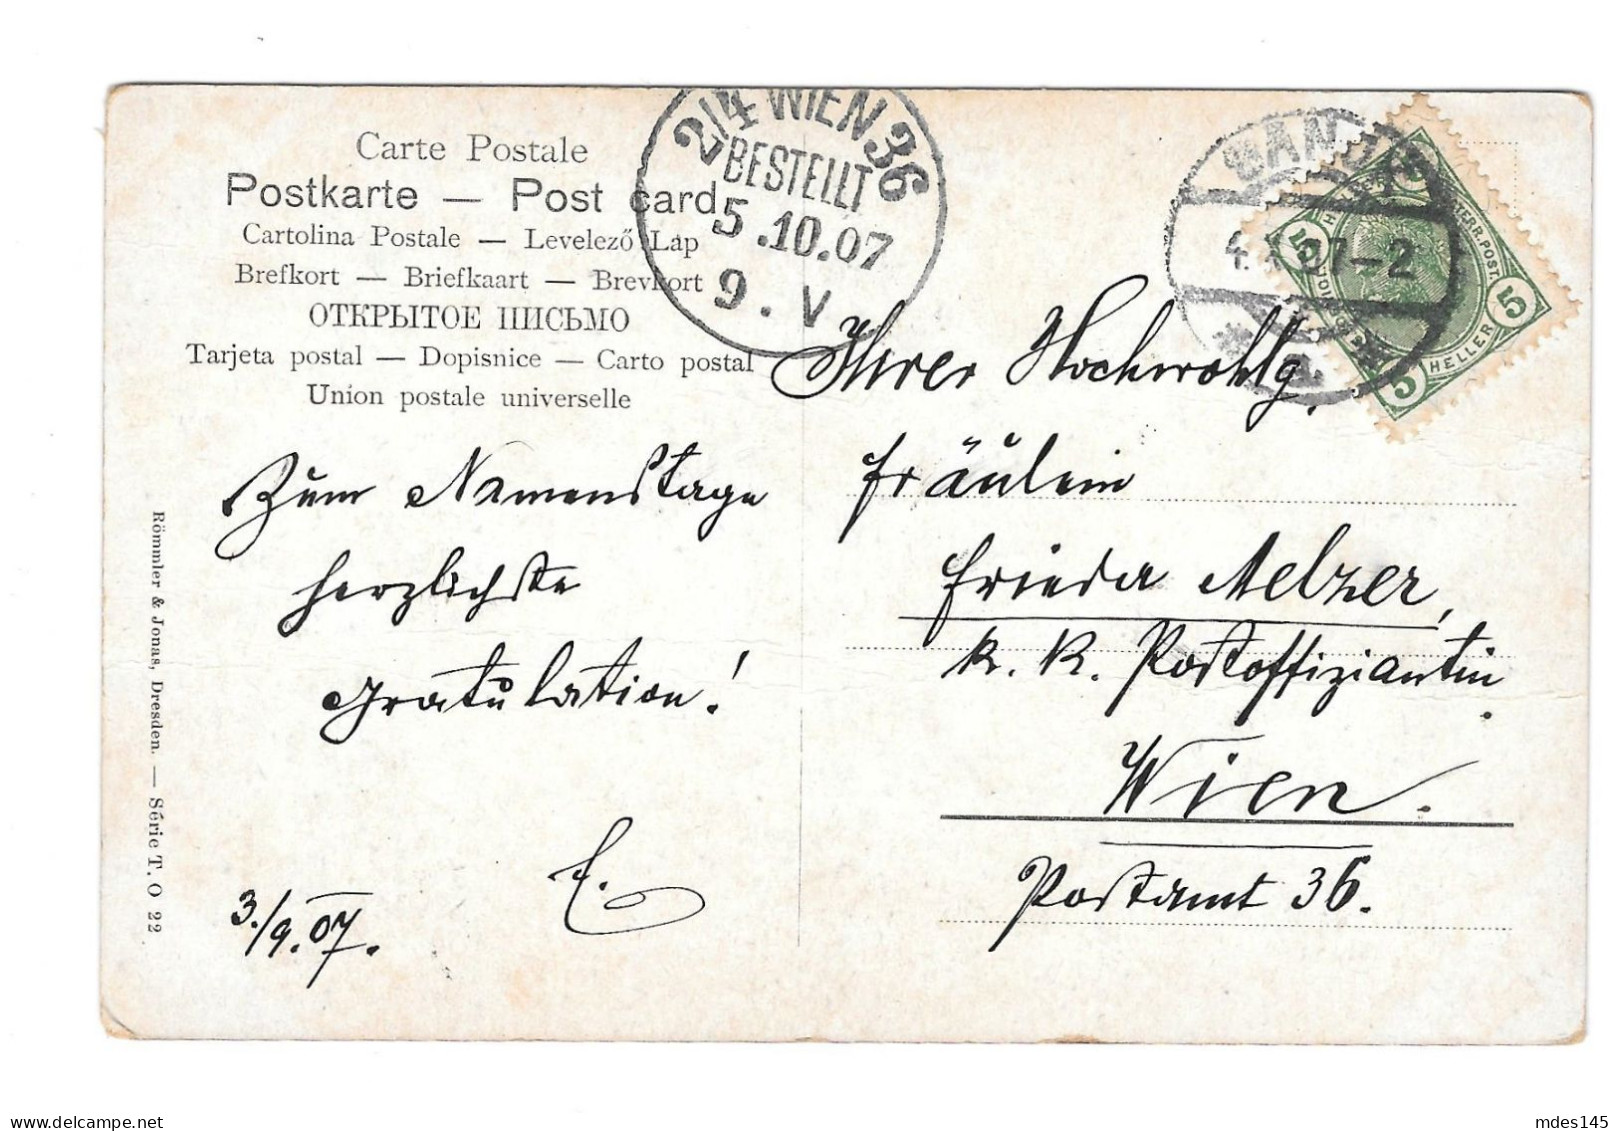 Carte Postale
Postkarte — Post card
Cartolina Postale — Levelező Lap
Brefkort — Briefkaart — Brevkort
ОТКРЫТОЕ ПИСЬМО
Tarjeta postal — Dopisnice — Carto postal
Union postale universelle
2/4 WIEN 36
BESTELLT
5.10.07
9. V
5
5
5
HELLER
HELLER
Zum Namenstage
herzlichste
Gratulation!
E.
3./9.07.
Ihrer Hochwohlg.
Fräulein
Frieda Melzer,
k. k. Postoffiziantin.
Wien.
Postamt 36.
Römmler & Jonas, Dresden. — Série T. O 22
mdes145